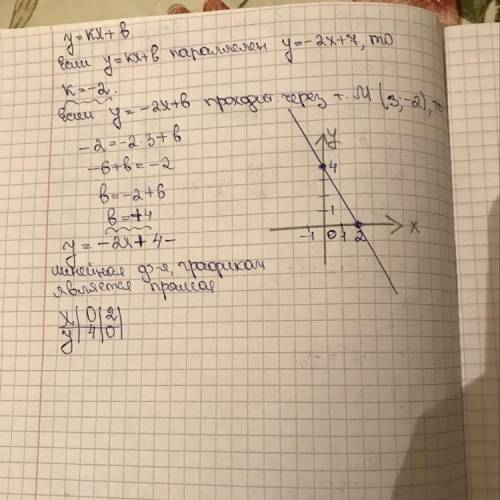 y=kx+b
если y=kx+b параллелен y=-2x+7, то
k=-2.
Если y=-2x+b проходит через т. M (3;-2), то
-2=-2·3+b
-6+b=-2
b=-2+6
b=+4
y=-2x+4-
линейная ф-я, графиком
является прямая
x | 0 | 2 |
y | 4 | 0 |
y
4
1
-1 0 1 2 x